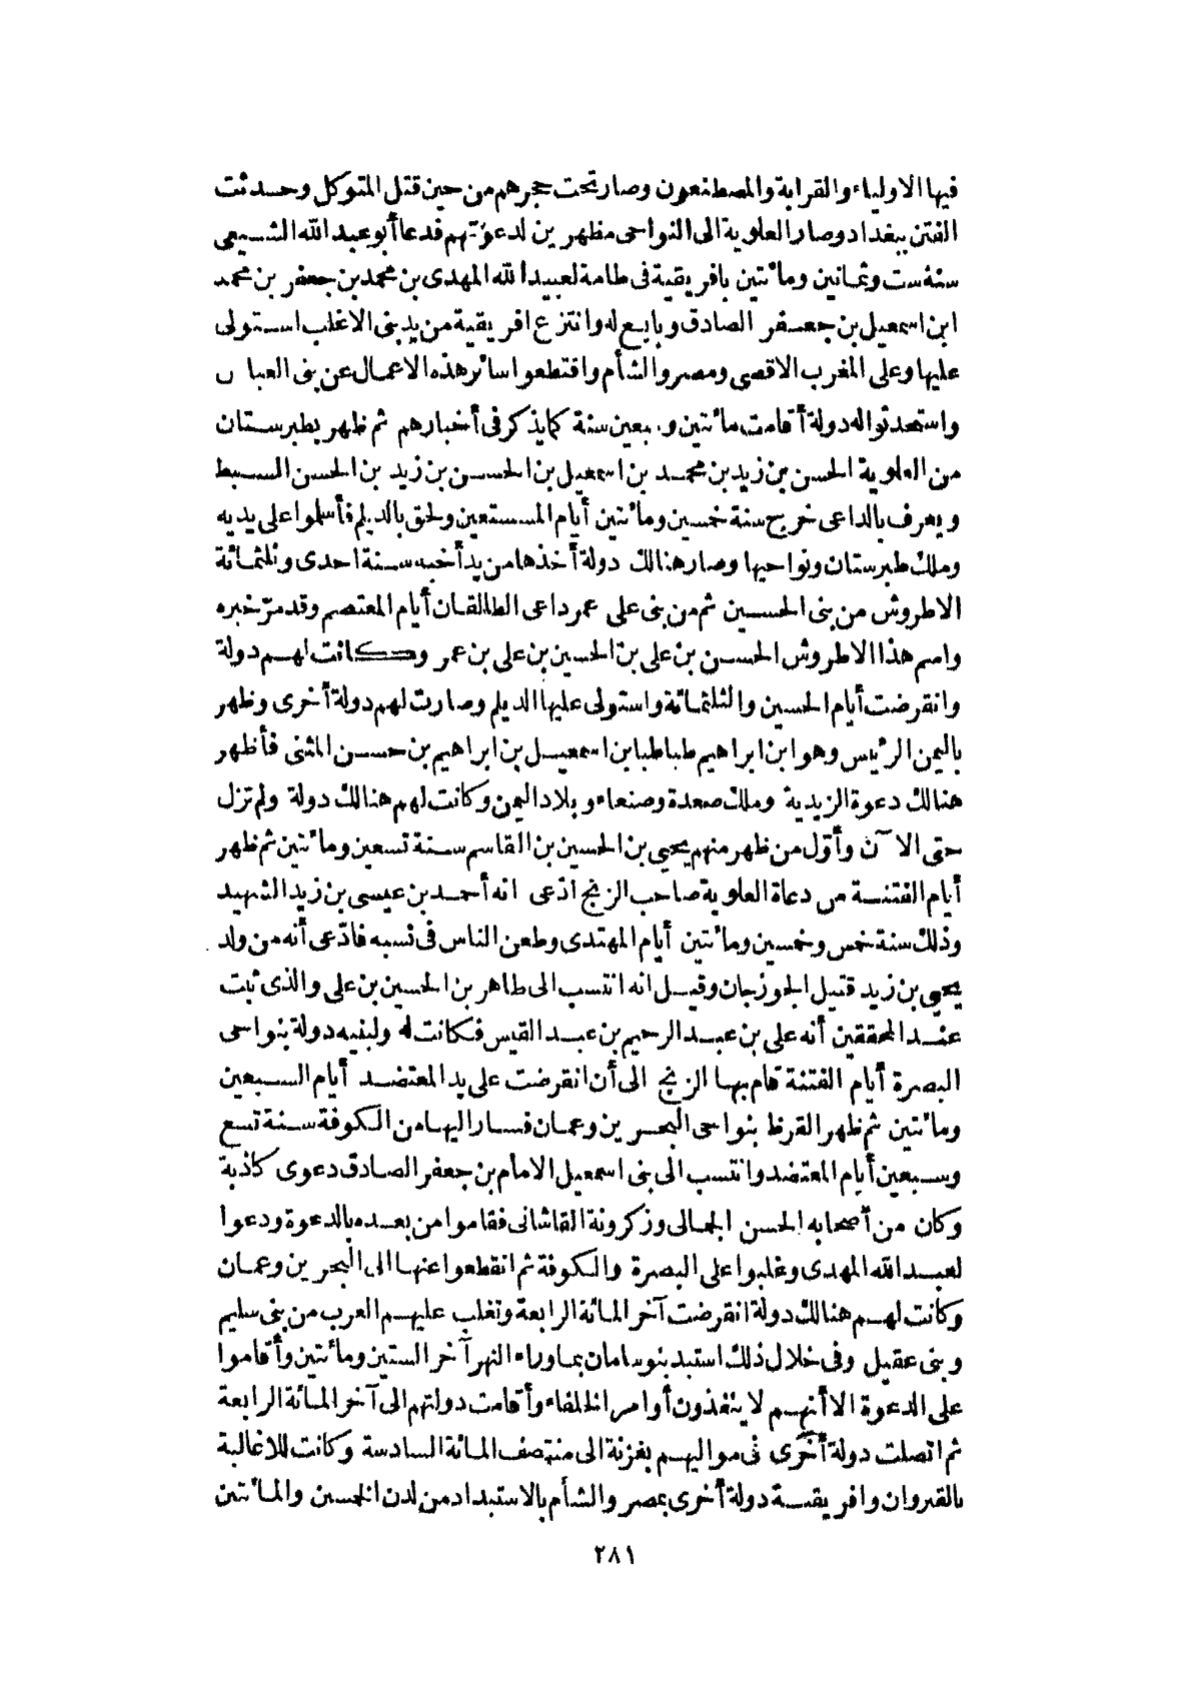 فيها الاولياء والقرابة والمصطنعون وصار تحت حجرهم من حين قتل المتوكل وحدثت
الفتن ببغداد وصار العلوية الى النواحى مظهرين لدعوتهم فدعا أبو عبد الله الشيعى
سنة ست وثمانين ومائتين بافريقية فى طامة لعبيد الله المهدى بن محمد بن جعفر بن محمد
ابن اسمعيل بن جعفر الصادق وبايع له وانتزع افريقية من يد بنى الاغلب استولى
عليها وعلى المغرب الاقصى ومصر والشأم واقتطعوا سائر هذه الاعمال عن بنى العباس
واستحدثوا له دولة أقامت مائتين وسبعين سنة كما يذكر فى أخبارهم ثم ظهر بطبرستان
من العلوية الحسن بن زيد بن محمد بن اسمعيل بن الحسن بن زيد بن الحسن السبط
ويعرف بالداعى خرج سنة خمسين ومائتين أيام المستعين ولحق بالديلم فأسلموا على يديه
وملك طبرستان ونواحيها وصار هنالك دولة أخذها من يد أخيه سنة احدى وثلثمائة
الاطروش من بنى الحسين ثم من بنى على عمر داعى الطالقان أيام المعتصم وقد مرّ خبره
واسم هذا الاطروش الحسن بن على بن الحسين بن على بن عمر وكانت لهم دولة
وانقرضت أيام الحسين والثلثمائة واستولى عليها الديلم وصارت لهم دولة أخرى وظهر
باليمن الرئيس وهو ابن ابراهيم طباطبا بن اسمعيل بن ابراهيم بن حسن المثنى فأظهر
هنالك دعوة الزيدية وملك صعدة وصنعاء وبلاد اليمن وكانت لهم هنالك دولة ولم تزل
حتى الآن وأوّل من ظهر منهم يحيى بن الحسين بن القاسم سنة تسعين ومائتين ثم ظهر
أيام الفتنة من دعاة العلوية صاحب الزنج ادّعى انه أحمد بن عيسى بن زيد الشهيد
وذلك سنة خمس وخمسين ومائتين أيام المهتدى وطعن الناس فى نسبه فادّعى أنه من ولد
يحيى بن زيد قتيل الجوزجان وقيل انه انتسب الى طاهر بن الحسين بن على والذى ثبت
عند المحققين أنه على بن عبد الرحيم بن عبد القيس فكانت له ولبنيه دولة بنواحى
البصرة أيام الفتنة قام بها الزنج الى أن انقرضت على يد المعتضد أيام السبعين
ومائتين ثم ظهر القرظ بنواحى البحرين وعمان فسار اليها من الكوفة سنة تسع
وسبعين أيام المعتضد وانتسب الى بنى اسمعيل الامام بن جعفر الصادق دعوى كاذبة
وكان من أصحابه الحسن الجمالى وزكرونة القاشانى فقاموا من بعده بالدعوة ودعوا
لعبد الله المهدى وغلبوا على البصرة والكوفة ثم انقطعوا عنها الى البحرين وعمان
وكانت لهم هنالك دولة انقرضت آخر المائة الرابعة وتغلب عليهم العرب من بنى سليم
وبنى عقيل وفى خلال ذلك استبد بنو سامان بما وراء النهر آخر الستين ومائتين وأقاموا
على الدعوة الا أنهم لا ينفذون أوامر الخلفاء وأقامت دولتهم الى آخر المائة الرابعة
ثم اتصلت دولة أخرى فى مواليهم بغزنة الى منتصف المائة السادسة وكانت للاغالبة
بالقيروان وافريقية دولة أخرى بمصر والشأم بالاستبداد من لدن الخمسين والمائتين
٢٨١